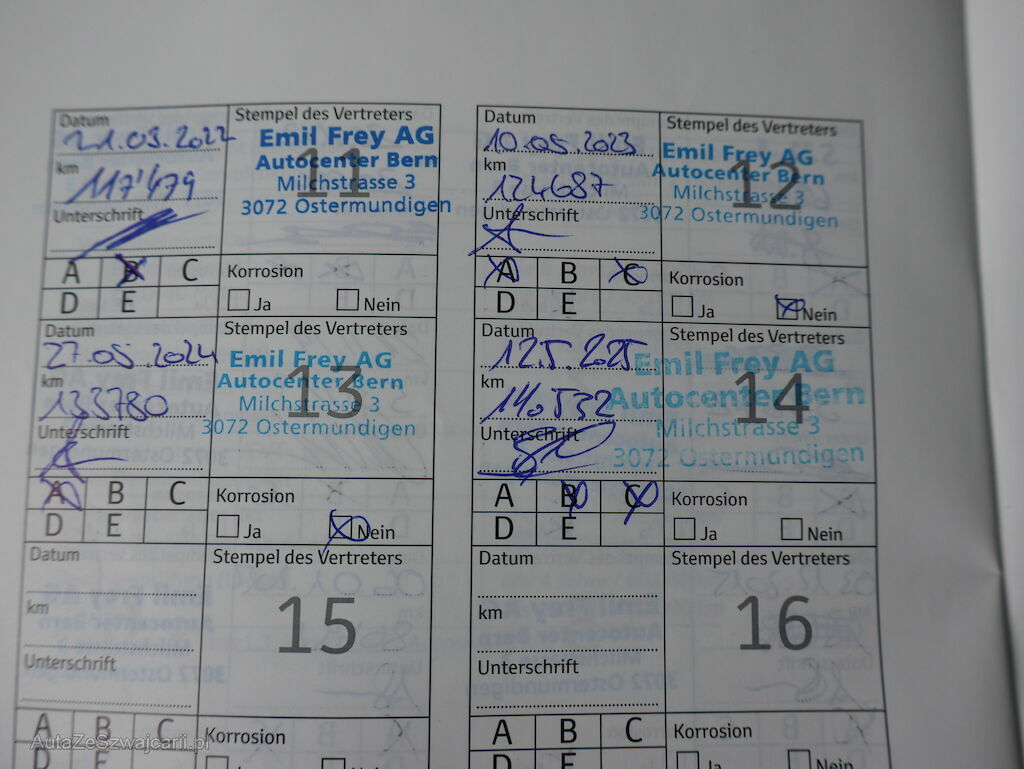 Datum
21.03.2022
km
117'479
Unterschrift
Stempel des Vertreters
11
Emil Frey AG
Autocenter Bern
Milchstrasse 3
3072 Ostermundigen
A B C
D E
Korrosion
Ja Nein
Datum
10.05.2023
km
124687
Unterschrift
Stempel des Vertreters
12
Emil Frey AG
Autocenter Bern
Milchstrasse 3
3072 Ostermundigen
A B C
D E
Korrosion
Ja Nein
Datum
27.05.2024
km
133780
Unterschrift
Stempel des Vertreters
13
Emil Frey AG
Autocenter Bern
Milchstrasse 3
3072 Ostermundigen
A B C
D E
Korrosion
Ja Nein
Datum
12.5.2025
km
140532
Unterschrift
Stempel des Vertreters
14
Emil Frey AG
Autocenter Bern
Milchstrasse 3
3072 Ostermundigen
A B C
D E
Korrosion
Ja Nein
Datum
km
Unterschrift
Stempel des Vertreters
15
A B C
Korrosion
Datum
km
Unterschrift
Stempel des Vertreters
16
A B C
D E
Korrosion
Ja Nein
AutaZeSzwajcarii.pl